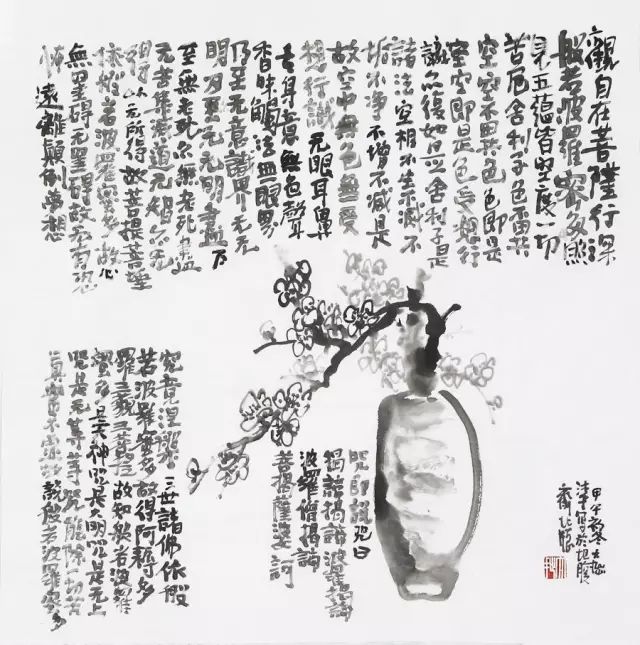 觀自在菩薩行深
般若波羅蜜多照
見五蘊皆空度一切
苦厄舍利子色不異
空空不異色色即是
空空即是色受想行
識亦復如是舍利子是
諸法空相不生滅不
垢不淨不增不減是
故空中無色無受
想行識无眼耳鼻
舌身意無色聲
香味觸法無眼界
乃至无意識界无无
明乃至无无明盡乃
至無老死亦無老死盡
无苦集滅道无智亦无
得以无所得故菩提薩埵
依般若波羅蜜多故心
無罣礙无罣礙故无有恐
怖遠離顛倒夢想
究竟涅槃三世諸佛依般
若波羅蜜多故得阿耨多
羅三藐三菩提故知般若波羅
蜜多是大神咒是大明咒是无上
咒是无等等咒能除一切苦
真實不虛故說般若波羅蜜多
咒即說咒曰
揭諦揭諦波羅揭諦
波羅僧揭諦
菩提薩婆訶
甲午